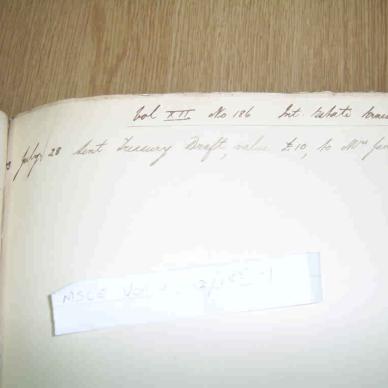 Vol XII No 186 Int.
July 28 Sent Treasury Draft, value £10, to Mrs
MSCE Vol